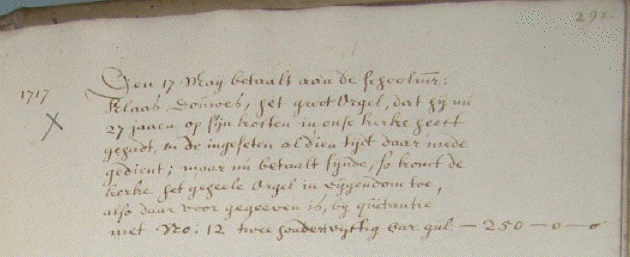 292
1717
Den 17 May betaalt aan de schoolmr:
Klaas Douwes, het groot Orgel, dat hij nu
27 jaaren op sijn kosten in onse kerke heeft
gehadt, en de ingeseten al dien tijdt daar mede
gedient; maar nu betaalt sijnde, so komt de
kerke het geheele Orgel in eijgendom toe,
also daar voor gegeeven is, bij quitantie
met No: 12 twee hondert vijftig Car. gul: — 250 — 0 — 0